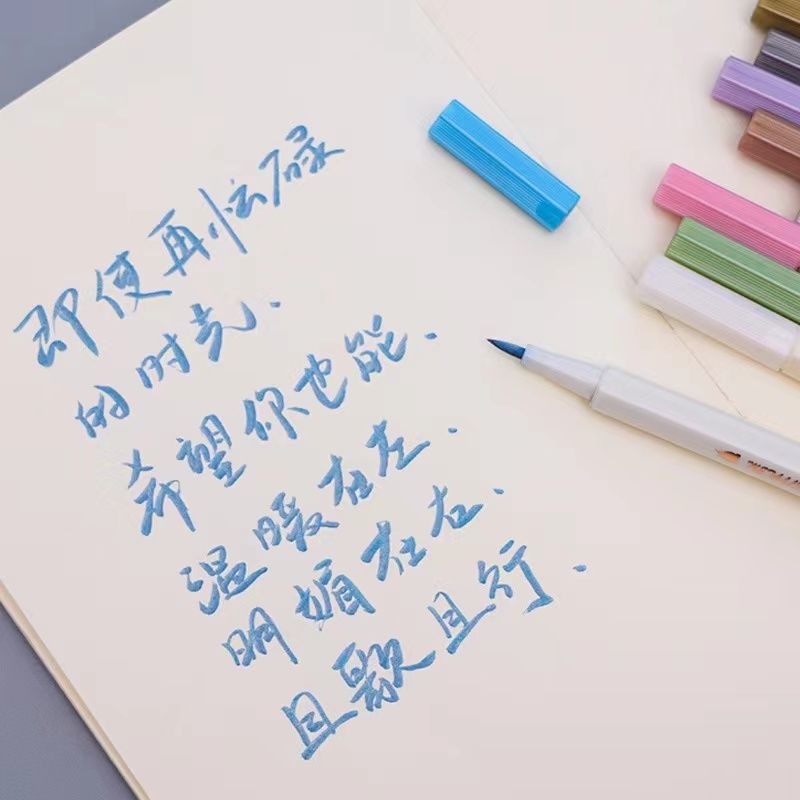 即使再忙碌
的时光.
希望你也能.
温暖在左.
明媚在右.
且歌且行.